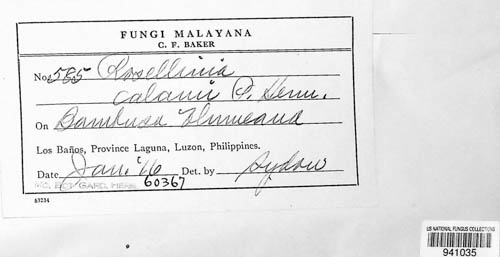 FUNGI MALAYANA
C. F. BAKER
No. 585 Rosellinia
calami P. Henn.
On Bambusa Blumeana
Los Baños, Province Laguna, Luzon, Philippines.
Date Jan. '16 Det. by Sydow
MO. BOT. GARD. HERB. 60367
63234
US NATIONAL FUNGUS COLLECTIONS
941035